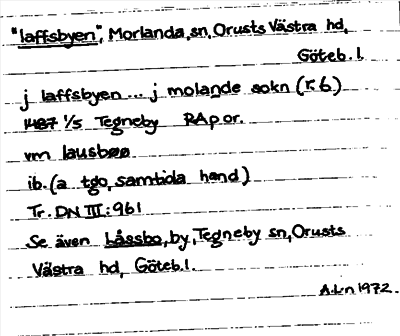 "laffsbyen", Morlanda sn, Orusts Västra hd,
Göteb. l.
j laffsbyen ... j molande sokn (r. 6)
1487 1/5 Tegneby RAp or.
vm lausbøø
ib. (a tgo, samtida hand)
Tr. DN III: 961
Se även Låssbo, by, Tegneby sn, Orusts
Västra hd, Göteb. l.
A.L-n 1972.